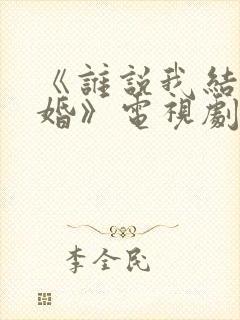 《誰說我結
婚》電視劇
李全民